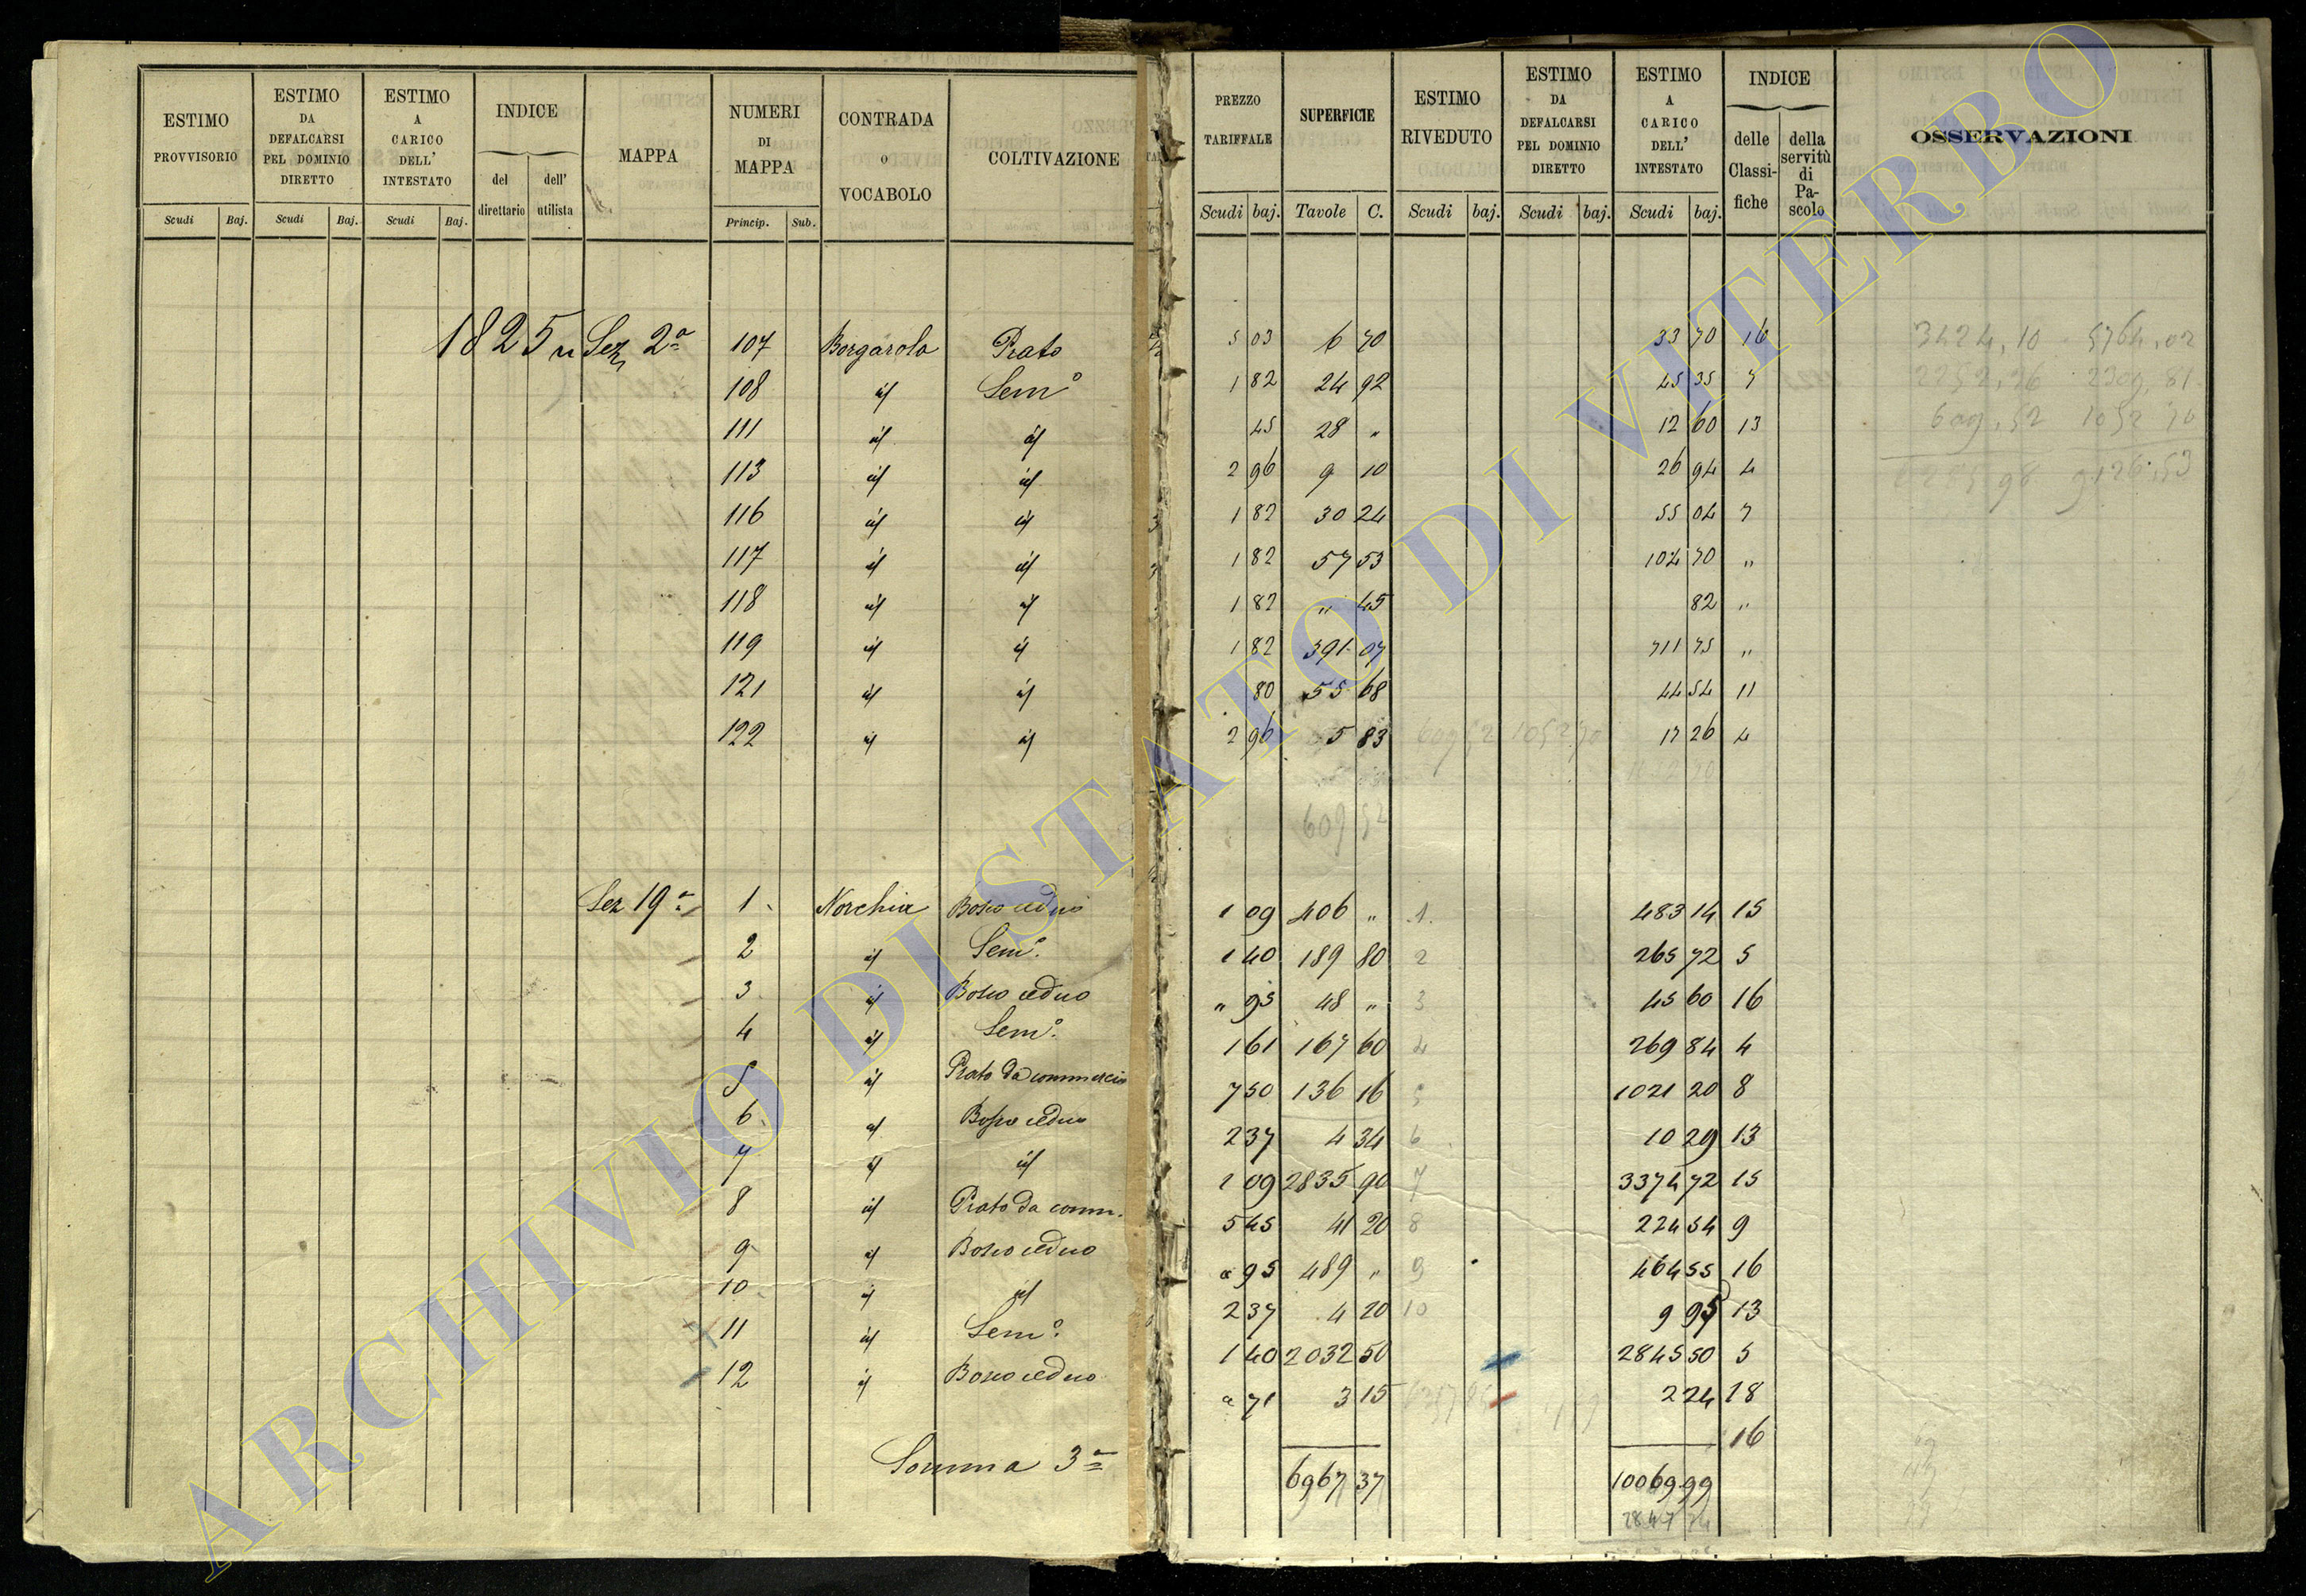 ESTIMO PROVVISORIO Scudi Baj.
ESTIMO DA DEFALCARSI PEL DOMINIO DIRETTO Scudi Baj.
ESTIMO A CARICO DELL' INTESTATO Scudi Baj.
INDICE del direttario dell' utilista
MAPPA
NUMERI DI MAPPA Princip. Sub.
CONTRADA O VOCABOLO
COLTIVAZIONE
PREZZO TARIFFALE Scudi baj.
SUPERFICIE Tavole C.
ESTIMO RIVEDUTO Scudi baj.
ESTIMO DA DEFALCARSI PEL DOMINIO DIRETTO Scudi baj.
ESTIMO A CARICO DELL' INTESTATO Scudi baj.
INDICE delle Classi-fiche della servitù di Pa-scolo
OSSERVAZIONI
1825 Sez 2a 107 Borgarola Prato 5 03 6 70 33 70 16
108 id Semo 1 82 24 92 45 35 7
111 id id 45 28 " 12 60 13
113 id id 2 96 9 10 26 94 4
116 id id 1 82 30 24 55 04 7
117 id id 1 82 57 53 104 70 "
118 id id 1 82 " 45 82 "
119 id id 1 82 391 07 711 75 "
121 id id 80 55 68 44 54 11
122 id id 2 96 5 83 609 52 1052 70 17 26 4
1052 70
609 52
3424,10 5764,02
2252,26 2309,81
609,52 1052 70
98 9126,53
Sez 19a 1 Norchia Bosco ceduo 1 09 406 " 1 483 14 15
2 id Semo. 1 40 189 80 2 265 72 5
3 id Bosco ceduo " 95 48 " 3 45 60 16
4 id Semo. 1 61 167 60 4 269 84 4
5 id Prato da commercio 7 50 136 16 5 1021 20 8
6 id Bosco ceduo 2 37 4 34 6 10 29 13
7 id id 1 09 2835 90 7 3374 72 15
8 id Prato da comm. 5 45 41 20 8 224 54 9
9 id Bosco ceduo " 95 489 " 9 464 55 16
10 id id 2 37 4 20 10 9 95 13
11 id Semo. 1 40 2032 50 2845 50 5
12 id Bosco ceduo " 71 3 15 2 24 18
16
Somma 3a 6967 37 10069 99
2847 74
ARCHIVIO DI STATO DI VITERBO